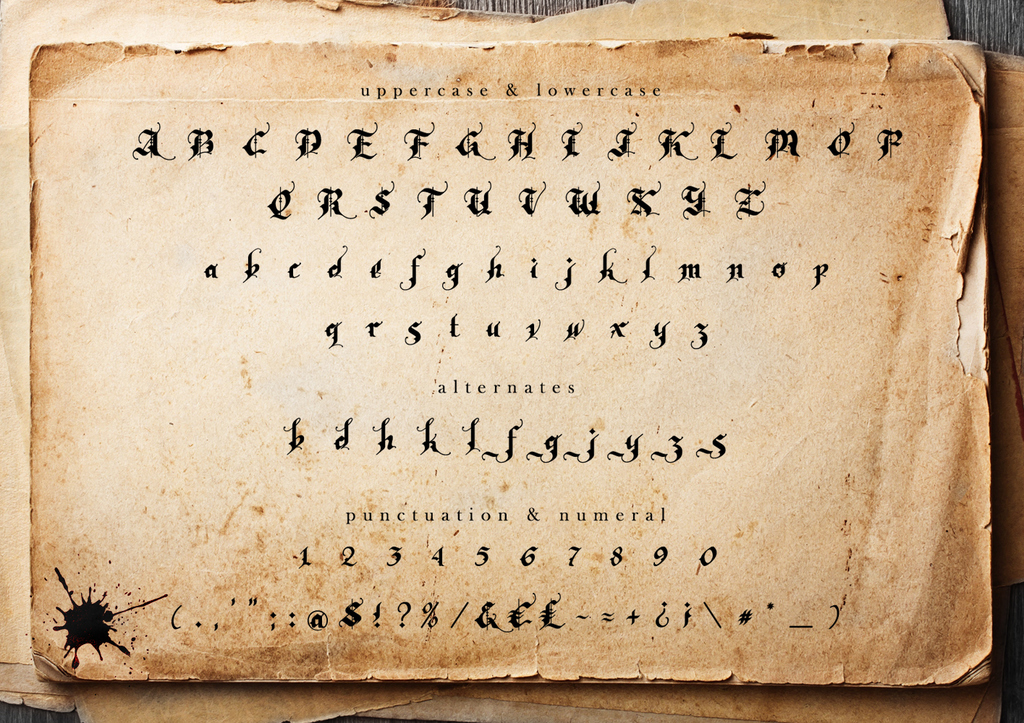 uppercase & lowercase
A B C D E F G H I J K L M O P
Q R S T U V W X Y Z
a b c d e f g h i j k l m n o p
q r s t u v w x y z
alternates
b d h k l f g j y z s
punctuation & numeral
1 2 3 4 5 6 7 8 9 0
( . , ' " ; : @ $ ! ? % / & € £ ~ ≈ + ¿ ¡ \ # * _ )